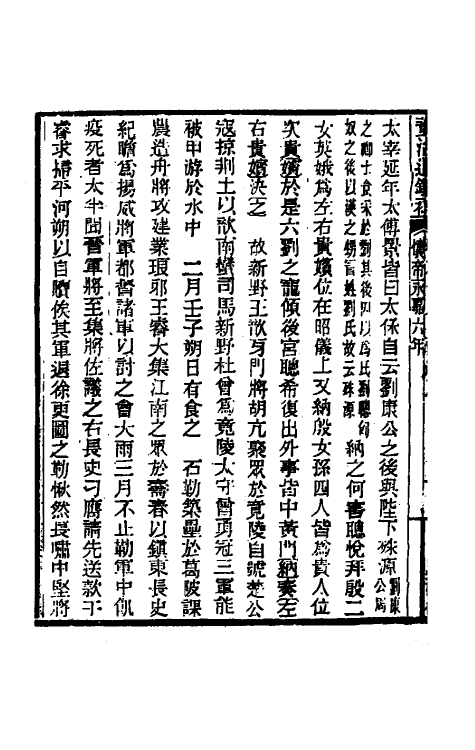 資治通鑑補 懷帝永嘉六年
太宰延年太傅景皆曰太保自云劉康公之後與陛下殊源劉康公周
之卿士食采於劉其後因以爲氏劉聰匈奴之後以漢之甥冒姓劉氏故云殊源納之何害聰悅拜殷二
女英娥爲左右貴嬪位在昭儀上又納殷女孫四人皆爲貴人位
次貴嬪於是六劉之寵傾後宮聰希復出外事皆中黃門納奏左
右貴嬪決之 故新野王歆牙門將胡亢聚眾於竟陵自號楚公
寇掠荆土以歆南蠻司馬新野杜曾爲竟陵太守曾勇冠三軍能
被甲游於水中 二月壬子朔日有食之 石勒築壘於葛陂課
農造舟將攻建業琅邪王睿大集江南之眾於壽春以鎮東長史
紀瞻爲揚威將軍都督諸軍以討之會大雨三月不止勒軍中飢
疫死者太半聞晉軍將至集將佐議之右長史刁膺請先送款于
睿求掃平河朔以自贖俟其軍退徐更圖之勒愀然長嘯中堅將